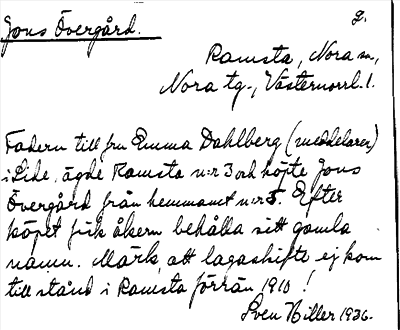 Jons Övergård.
2.
Ramsta, Nora sn,
Nora tg., Västernorrl. l.
Fadern till fru Emma Dahlberg (meddelarer)
i Lide, ägde Ramsta n:r 3 och köpte Jons
Övergård från hemmanet n:r 5. Efter
köpet fick åkern behålla sitt gamla
namn. Märk, att lagaskifte ej kom
till stånd i Ramsta förrän 1910!
Sven Hiller 1936.